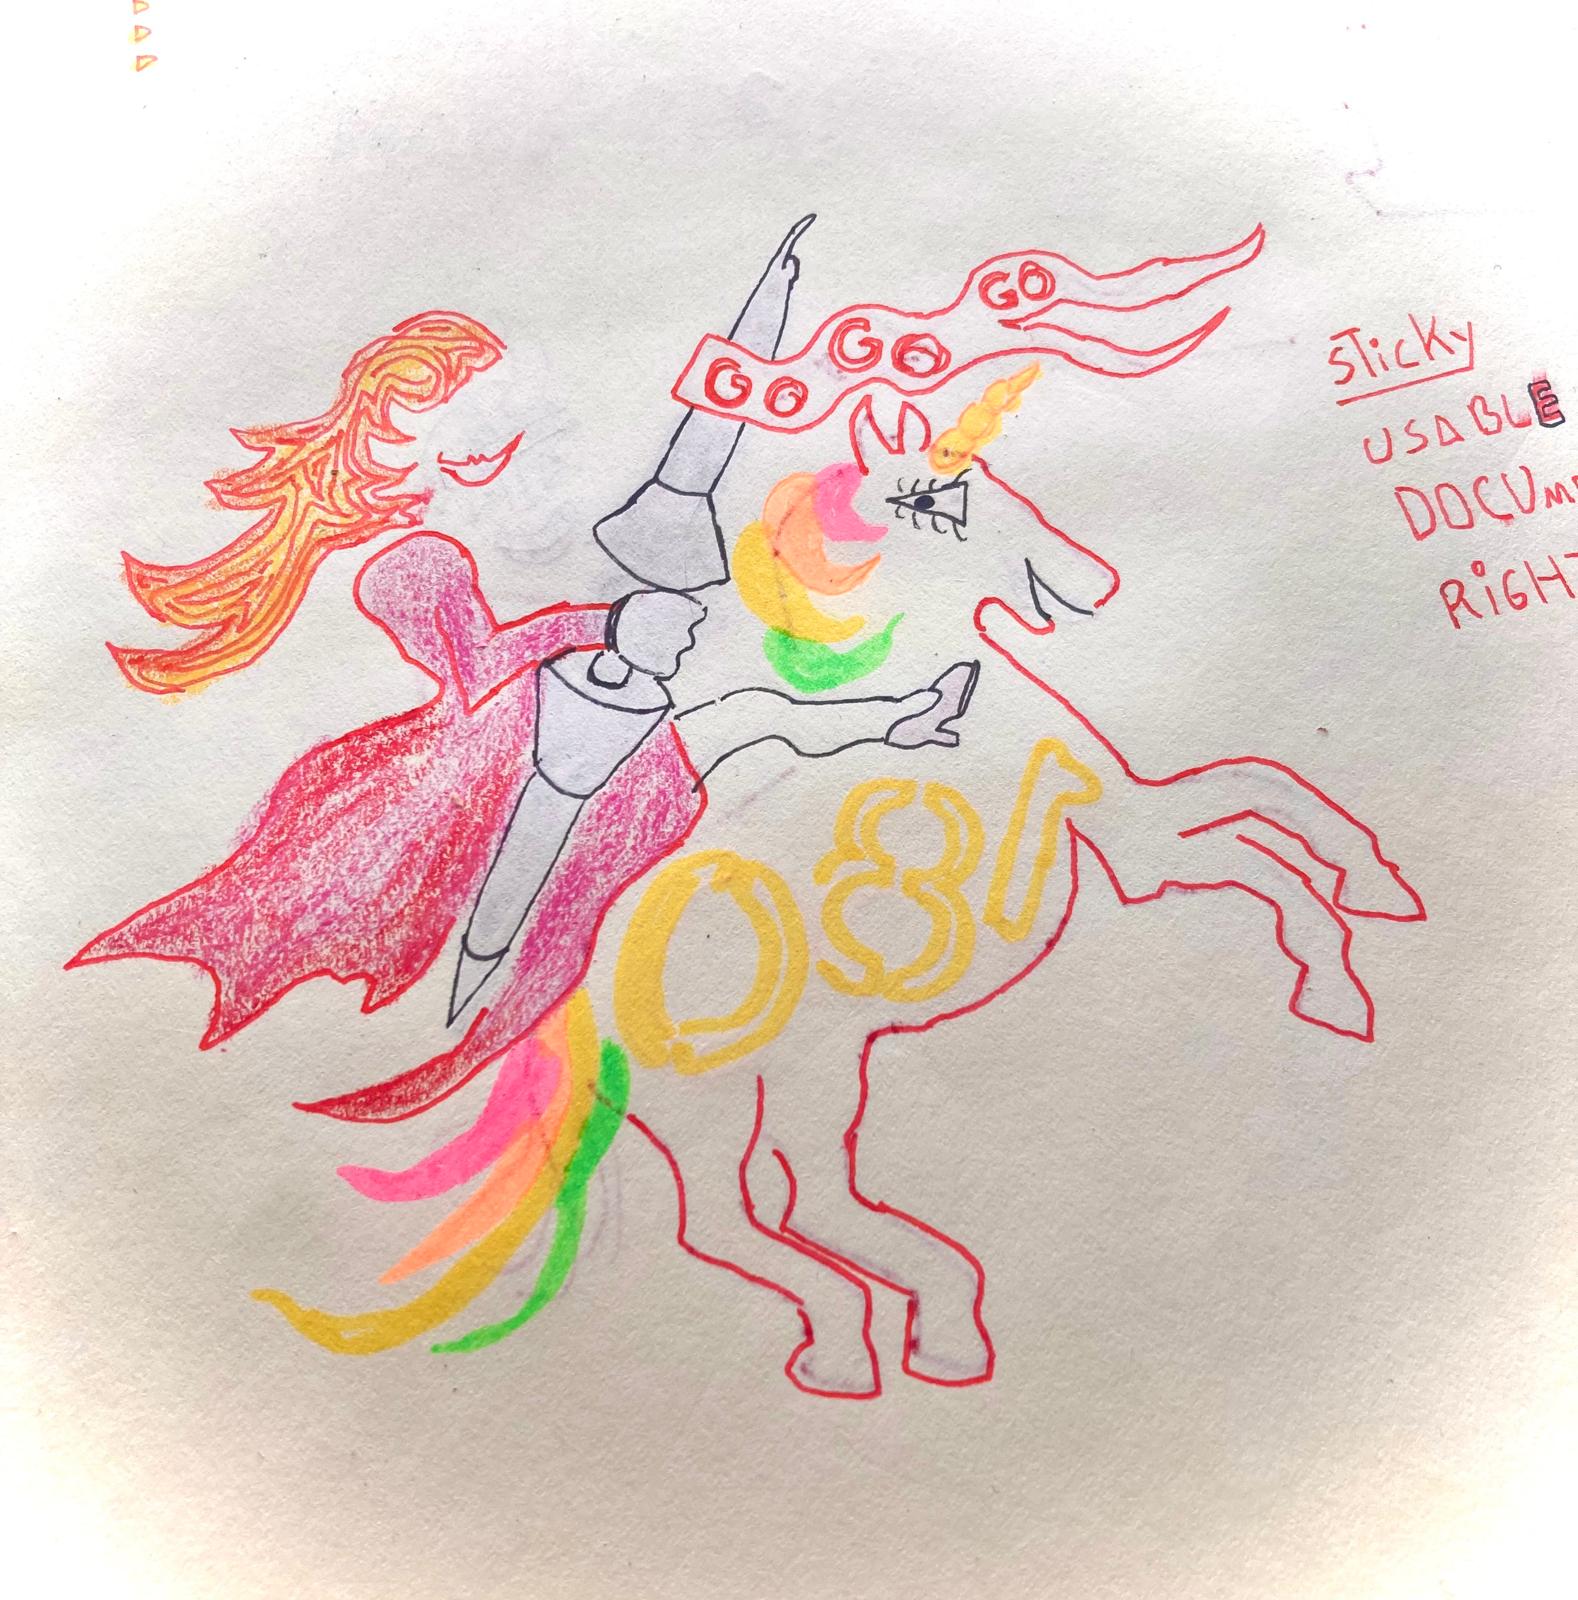 GO GO GO
081
sticky
USABLE
DOCUM
RIGHT